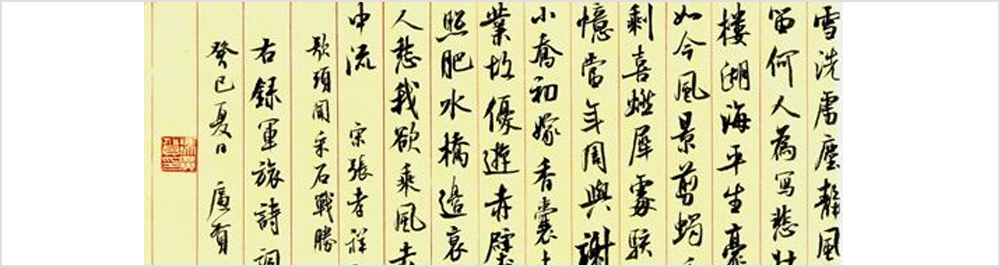 雪洗虜塵靜風
留何人為寫悲壯
樓湖海平生豪
如今風景剪燭
剩喜燃犀處駭
憶當年周與謝
小喬初嫁香囊
業故優遊赤壁
照肥水橋邊衰
人愁我欲乘風去
中流 宋張孝祥
歌頭聞采石戰勝
右錄軍旅詩詞
癸巳夏日 廣